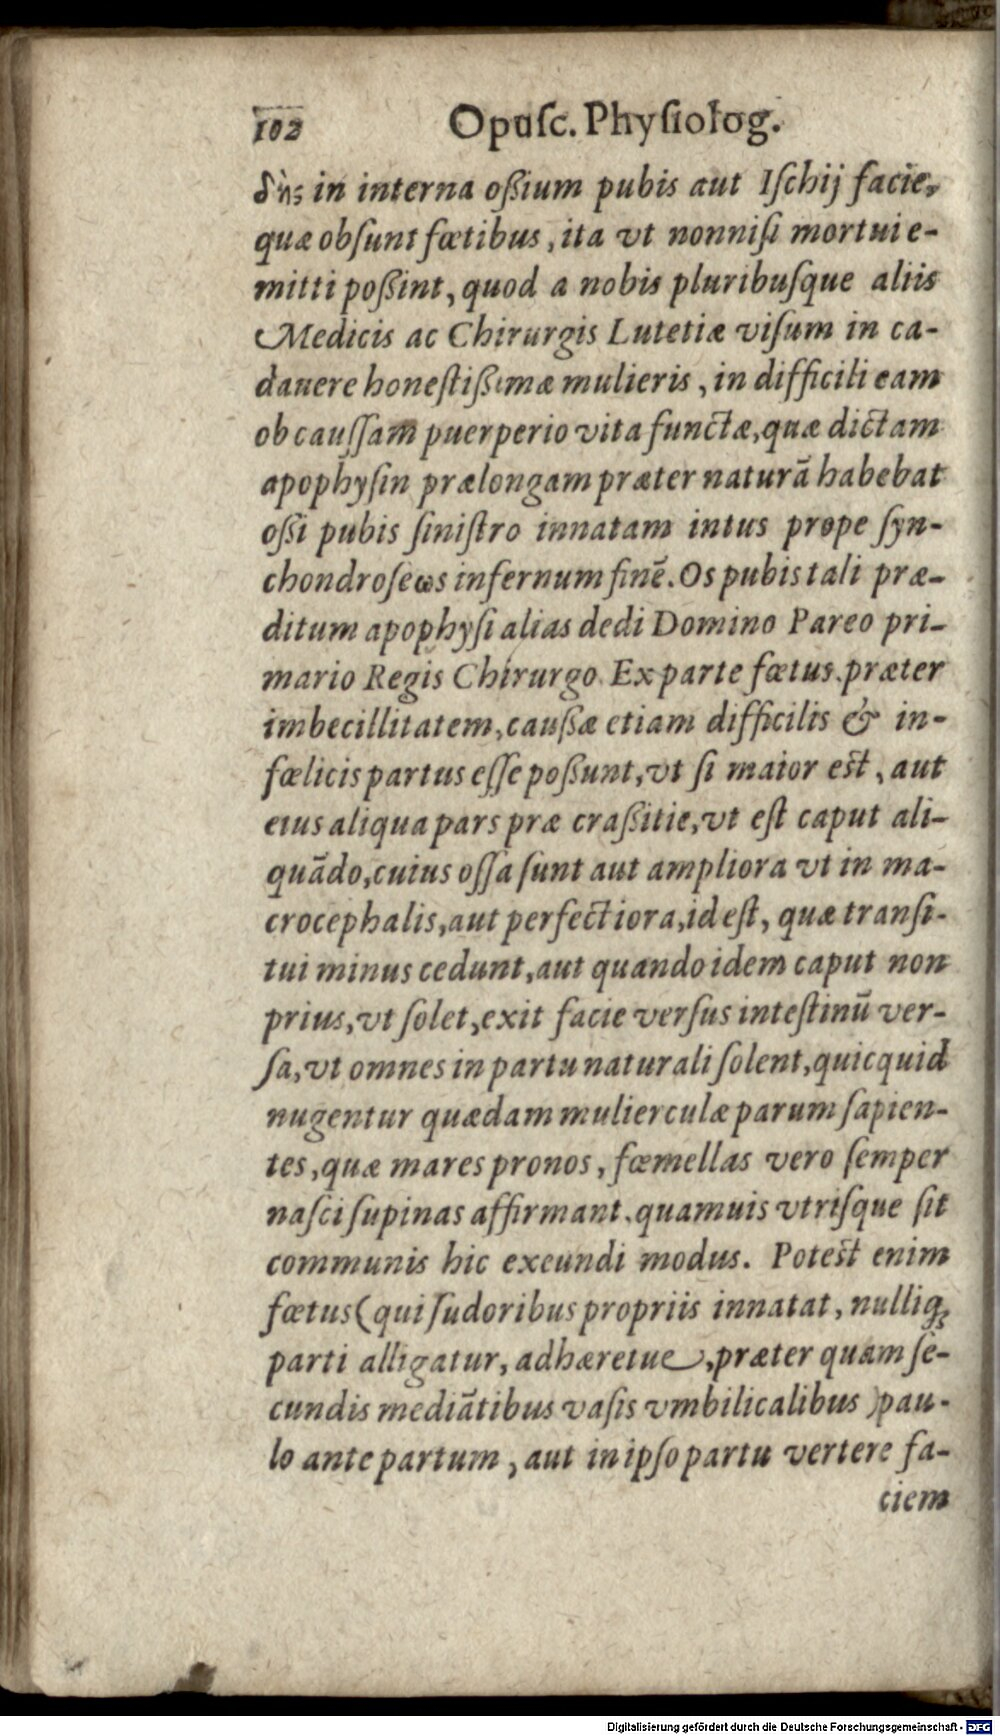 102 Opusc. Physiolog.
δὴς in interna oßium pubis aut Iſchij facie,
quæ obſunt fœtibus, ita vt nonniſi mortui e-
mitti poßint, quod a nobis pluribuſque aliis
Medicis ac Chirurgis Lutetiæ viſum in ca-
dauere honeſtißimæ mulieris, in difficili eam
ob cauſſam puerperio vita functæ, quæ dictam
apophyſin prælongam præter naturã habebat
oßi pubis ſiniſtro innatam intus prope ſyn-
chondroſeωs infernum finẽ. Os pubis tali præ-
ditum apophyſi alias dedi Domino Pareo pri-
mario Regis Chirurgo. Ex parte fœtus, præter
imbecillitatem, cauſſæ etiam difficilis & in-
fœlicis partus eſſe poßunt, vt ſi maior eſt, aut
eius aliqua pars præ craßitie, vt eſt caput ali-
quãdo, cuius oſſa ſunt aut ampliora vt in ma-
crocephalis, aut perfectiora, id eſt, quæ tranſi-
tui minus cedunt, aut quando idem caput non
prius, vt ſolet, exit facie verſus inteſtinũ ver-
ſa, vt omnes in partu naturali ſolent, quicquid
nugentur quædam mulierculæ parum ſapien-
tes, quæ mares pronos, fœmellas vero ſemper
naſci ſupinas affirmant, quamuis vtriſque ſit
communis hic exeundi modus. Poteſt enim
fœtus (qui ſudoribus propriis innatat, nulliq;
parti alligatur, adhæretue, præter quam ſe-
cundis mediãtibus vaſis vmbilicalibus) pau-
lo ante partum, aut in ipſo partu vertere fa-
ciem
Digitalisierung gefördert durch die Deutsche Forschungsgemeinschaft - DFG